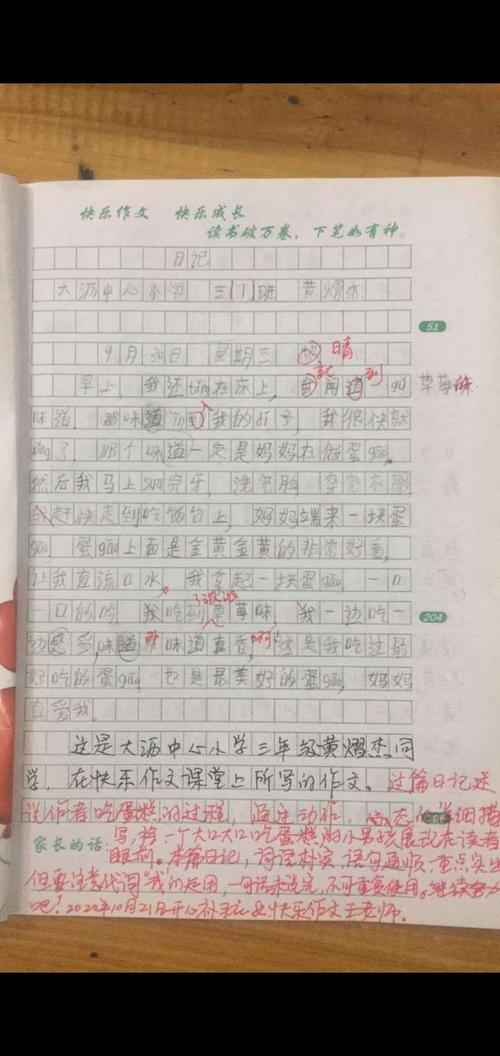 快乐作文 快乐成长
读书破万卷，下笔如有神。
日记
大沥中心小学 三(1)班 黄熠杰
51
9月30日 星期三 晴
早上，我还tǎng在床上，我闻到 gāo 草莓味
味道，那味道 我的 子，我很快就
了，那个味道一定是妈妈在做蛋gāo。
然后我马上suā完牙，洗完脸，穿完衣服，
我赶快走到吃饭台上，妈妈端来一块蛋
gāo，蛋gāo上面是金黄金黄的非常好看，
让我直流口水。我拿起一块蛋gāo，一口
一口的吃，我吃到了 草莓味，我一边吃一
204
边感受，味道 那味道真香，啊！这是我吃过最
好吃的蛋gāo，也是最美好的蛋gāo，妈妈
真爱我。
这是大沥中心小学三年级黄熠杰同
学，在快乐作文课堂上所写的作文。这篇日记述
说作者吃蛋糕的过程，通过动作，心态的详细描
家长的话：
写，将一个大口大口吃蛋糕的小男孩展现在读者
眼前。本篇日记，词语朴实，语句通顺，重点突出
但要注意代词“我”的运用，一句话未说完，不可重复使用。继续努力
吧！2020年10月21日开心 快乐作文王老师。